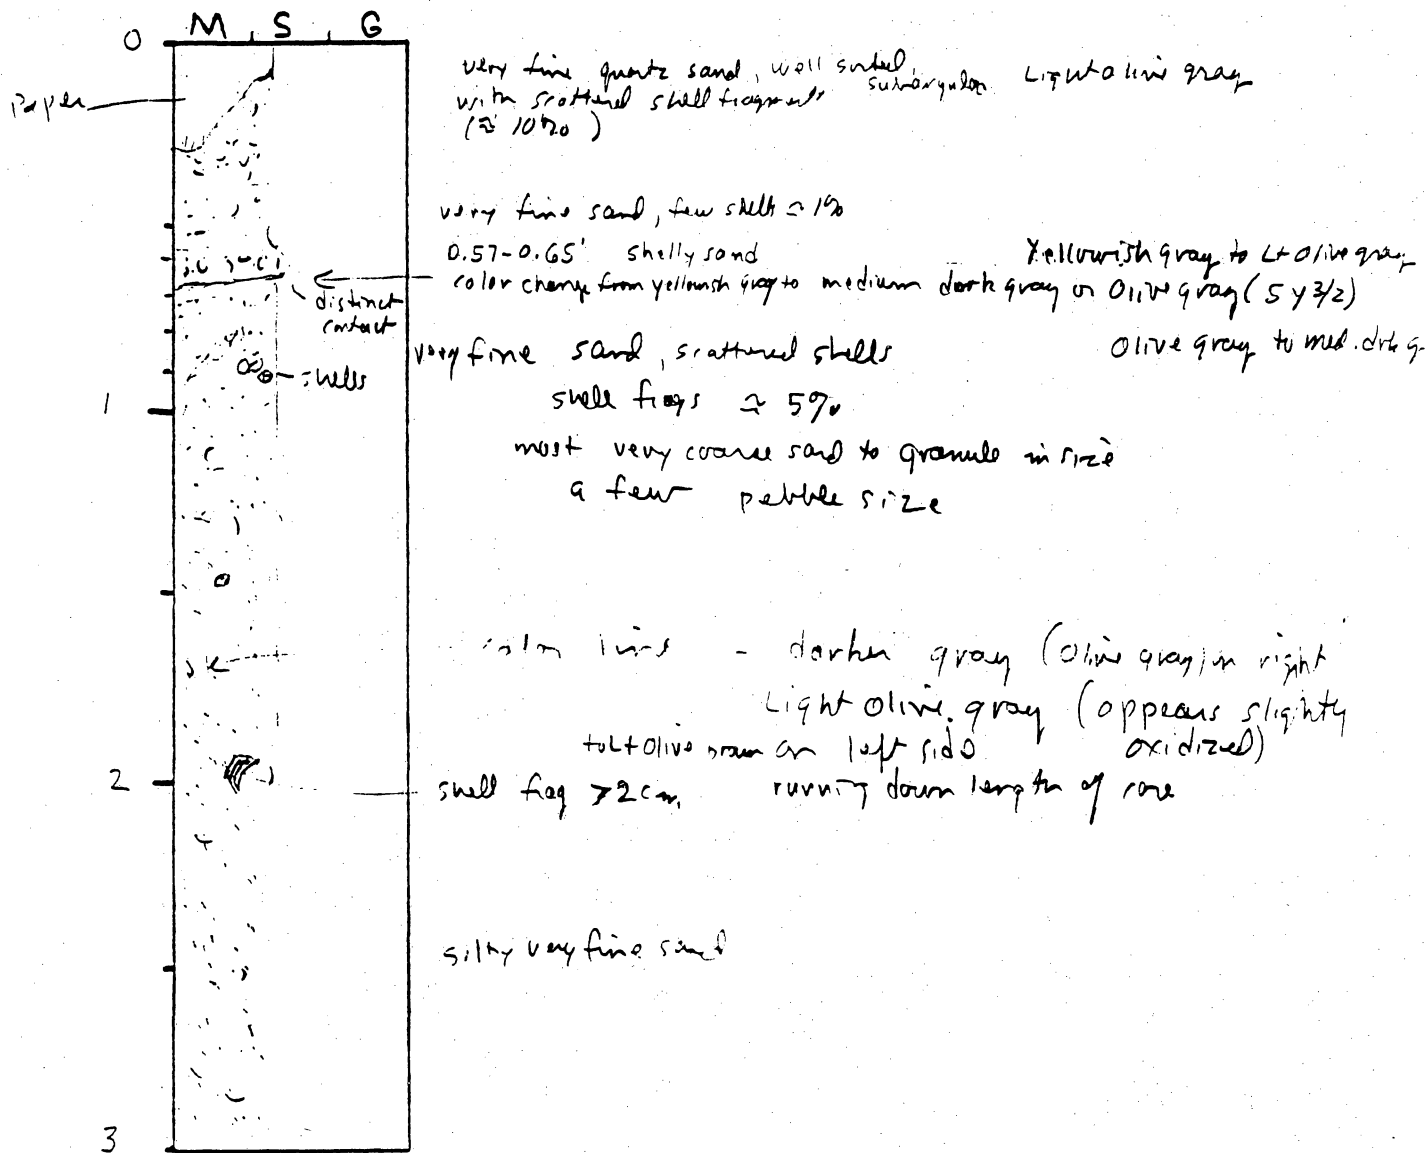 M S G
0
very fine quartz sand, well sorted, subangular Light olive gray
Paper
with scattered shell fragments
(≈ 10%)
very fine sand, few shells ≈ 1%
0.57-0.65' shelly sand Yellowish gray to Lt Olive gray
color change from yellowish gray to medium dark gray or Olive gray (5 y 3/2)
distinct
contact
very fine sand, scattered shells Olive gray to med. drk g
shells
shell frags ≈ 5%
1
most very coarse sand to granule in size
a few pebble size
color line - darker gray (Olive gray) on right
Light olive gray (appears slightly
to Lt Olive brown on left side oxidized)
2
shell frag >2cm, running down length of core
silty very fine sand
3